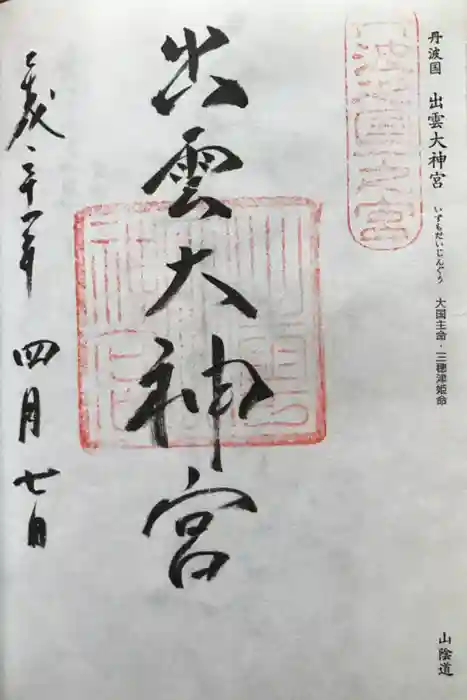 丹波国 出雲大神宮 いずもだいじんぐう 大国主命・三穂津姫命 山陰道
出雲大神宮
歳、三十一年 四月七日